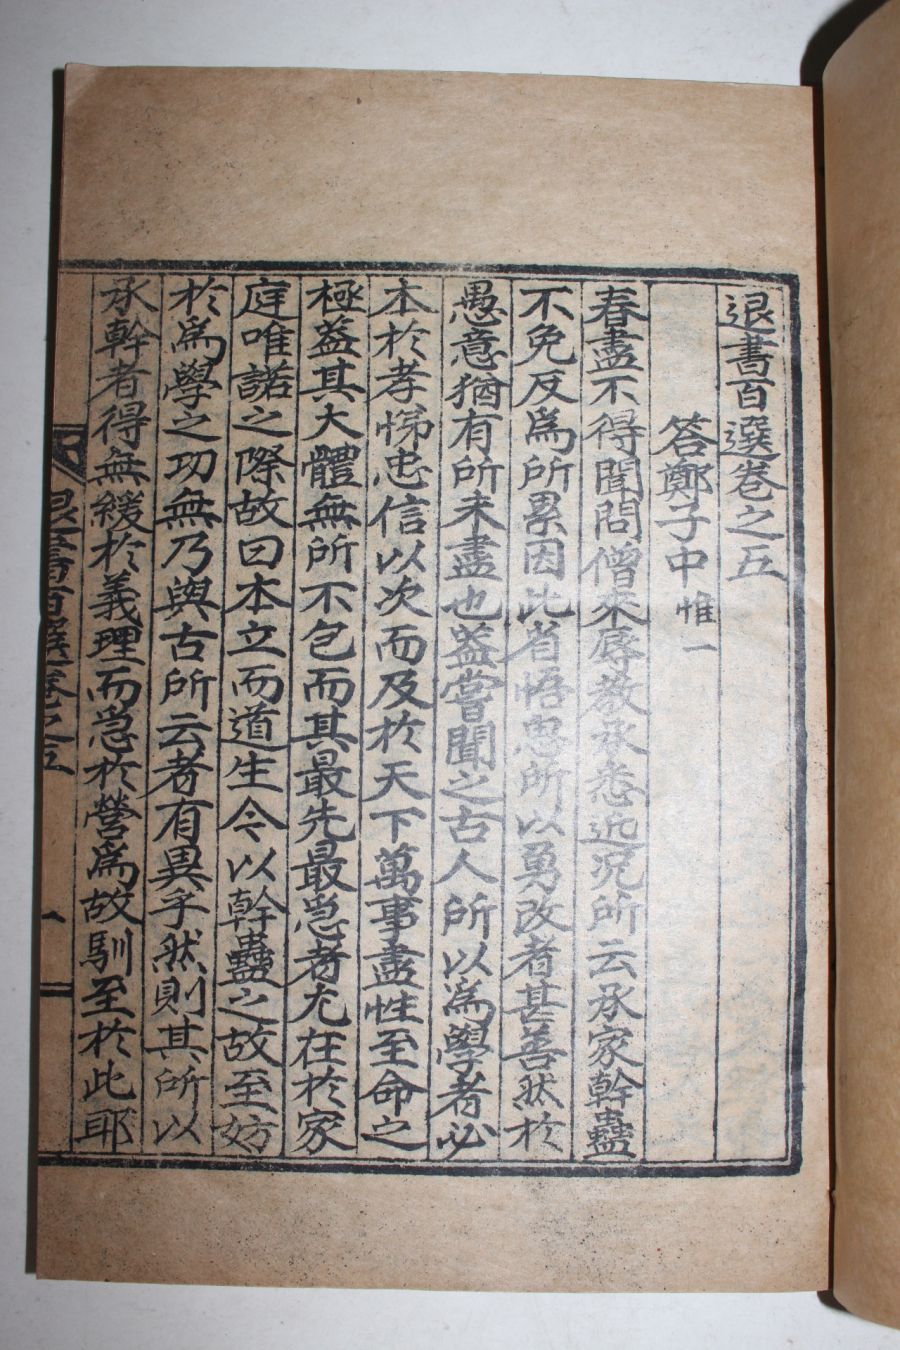 退書百選卷之五
答鄭子中惟一
春盡不得聞問僧來辱敎承悉近況所云承家幹蠱
不免反爲所累因此省悟思所以勇改者甚善然於
愚意猶有所未盡也盖嘗聞之古人所以爲學者必
本於孝悌忠信以次而及於天下萬事盡性至命之
極盖其大體無所不包而其最先最急者尤在於家
庭唯諾之際故曰本立而道生今以幹蠱之故至妨
於爲學之功無乃與古所云者有異乎然則其所以
承幹者得無緩於義理而急於營爲故馴至於此耶
退書百選卷之五
一